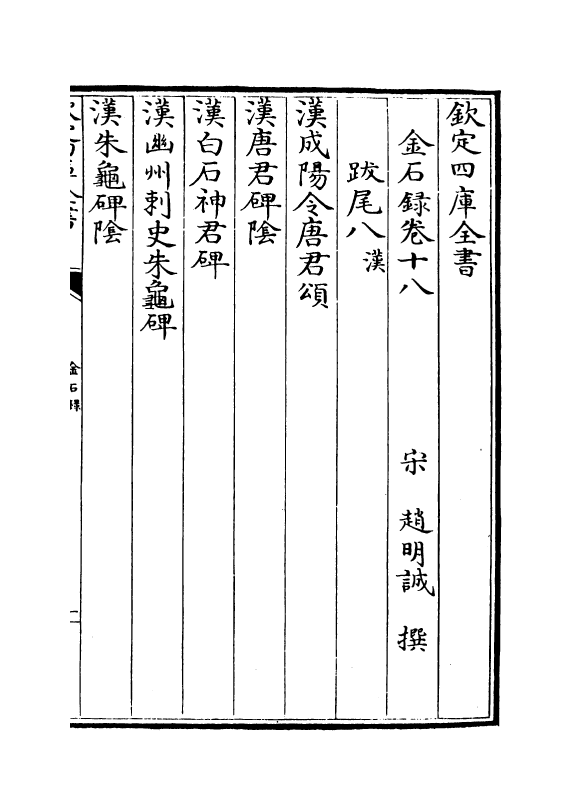 欽定四庫全書
金石録卷十八
宋 趙明誠 撰
跋尾八漢
漢成陽令唐君頌
漢唐君碑陰
漢白石神君碑
漢幽州刺史朱龜碑
漢朱龜碑陰
金石録